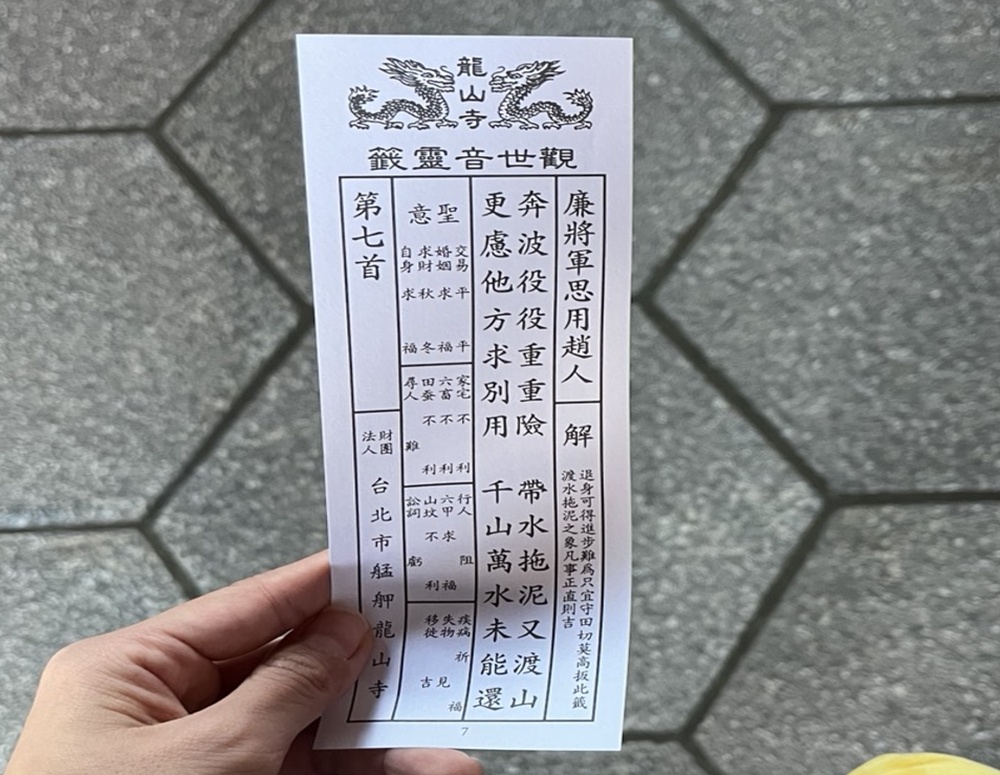 龍山寺
觀世音靈籤
廉將軍思用趙人
解
退身可得進步難為只宜守田切莫高扳此籤
渡水拖泥之象凡事正直則吉
奔波役役重重險 帶水拖泥又渡山
更慮他方求別用 千山萬水未能還
聖意
交易 平平
婚姻 求福
求財 秋冬
自身 求福
家宅 不利
六畜 不利
田蚕 不利
尋人 難
行人 阻
六甲 求福
山坟 不利
訟詞 虧
疾病 祈福
失物 見
移徙 吉
第七首
財團法人
台北市艋舺龍山寺
7